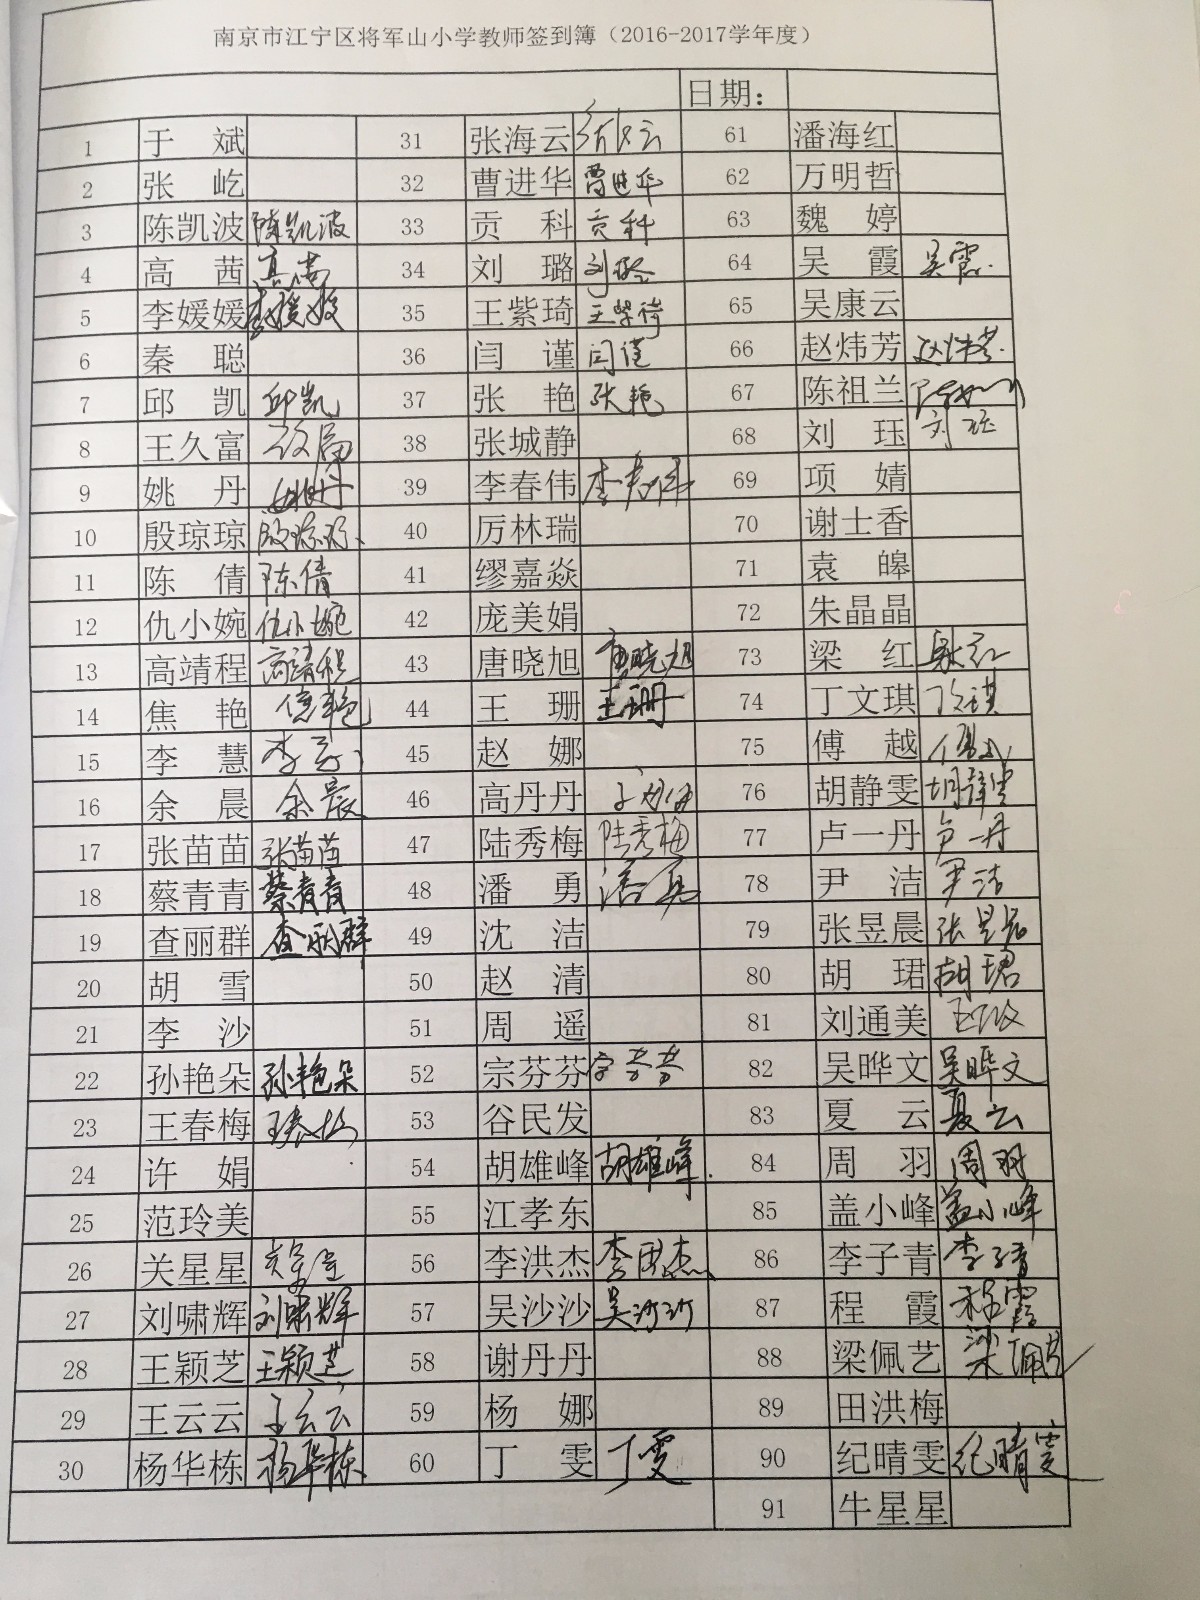 南京市江宁区将军山小学教师签到簿（2016-2017学年度）
日期：
1 于 斌 31 张海云 61 潘海红
2 张 屹 32 曹进华 曹进华 62 万明哲
3 陈凯波 陈凯波 33 贡 科 贡科 63 魏 婷
4 高 茜 高茜 34 刘 璐 刘璐 64 吴 霞 吴霞
5 李媛媛 李媛媛 35 王紫琦 王紫琦 65 吴康云
6 秦 聪 36 闫 谨 闫谨 66 赵炜芳 赵炜芳
7 邱 凯 邱凯 37 张 艳 张艳 67 陈祖兰
8 王久富 38 张城静 68 刘 珏 刘珏
9 姚 丹 姚丹 39 李春伟 李春伟 69 项 婧
10 殷琼琼 殷琼琼 40 厉林瑞 70 谢士香
11 陈 倩 陈倩 41 缪嘉焱 71 袁 皞
12 仇小婉 仇小婉 42 庞美娟 72 朱晶晶
13 高靖程 高靖程 43 唐晓旭 唐晓旭 73 梁 红
14 焦 艳 焦艳 44 王 珊 王珊 74 丁文琪 丁文琪
15 李 慧 李慧 45 赵 娜 75 傅 越 傅越
16 余 晨 余晨 46 高丹丹 76 胡静雯 胡静雯
17 张苗苗 张苗苗 47 陆秀梅 陆秀梅 77 卢一丹 卢一丹
18 蔡青青 蔡青青 48 潘 勇 潘勇 78 尹 洁 尹洁
19 查丽群 查丽群 49 沈 洁 79 张昱晨 张昱晨
20 胡 雪 50 赵 清 80 胡 珺 胡珺
21 李 沙 51 周 遥 81 刘通美
22 孙艳朵 孙艳朵 52 宗芬芬 宗芬芬 82 吴晔文 吴晔文
23 王春梅 王春梅 53 谷民发 83 夏 云 夏云
24 许 娟 54 胡雄峰 胡雄峰 84 周 羽 周羽
25 范玲美 55 江孝东 85 盖小峰 盖小峰
26 关星星 56 李洪杰 李洪杰 86 李子青 李子青
27 刘啸辉 刘啸辉 57 吴沙沙 吴沙沙 87 程 霞 程霞
28 王颖芝 王颖芝 58 谢丹丹 88 梁佩艺 梁佩艺
29 王云云 王云云 59 杨 娜 89 田洪梅
30 杨华栋 杨华栋 60 丁 雯 丁雯 90 纪晴雯 纪晴雯
91 牛星星